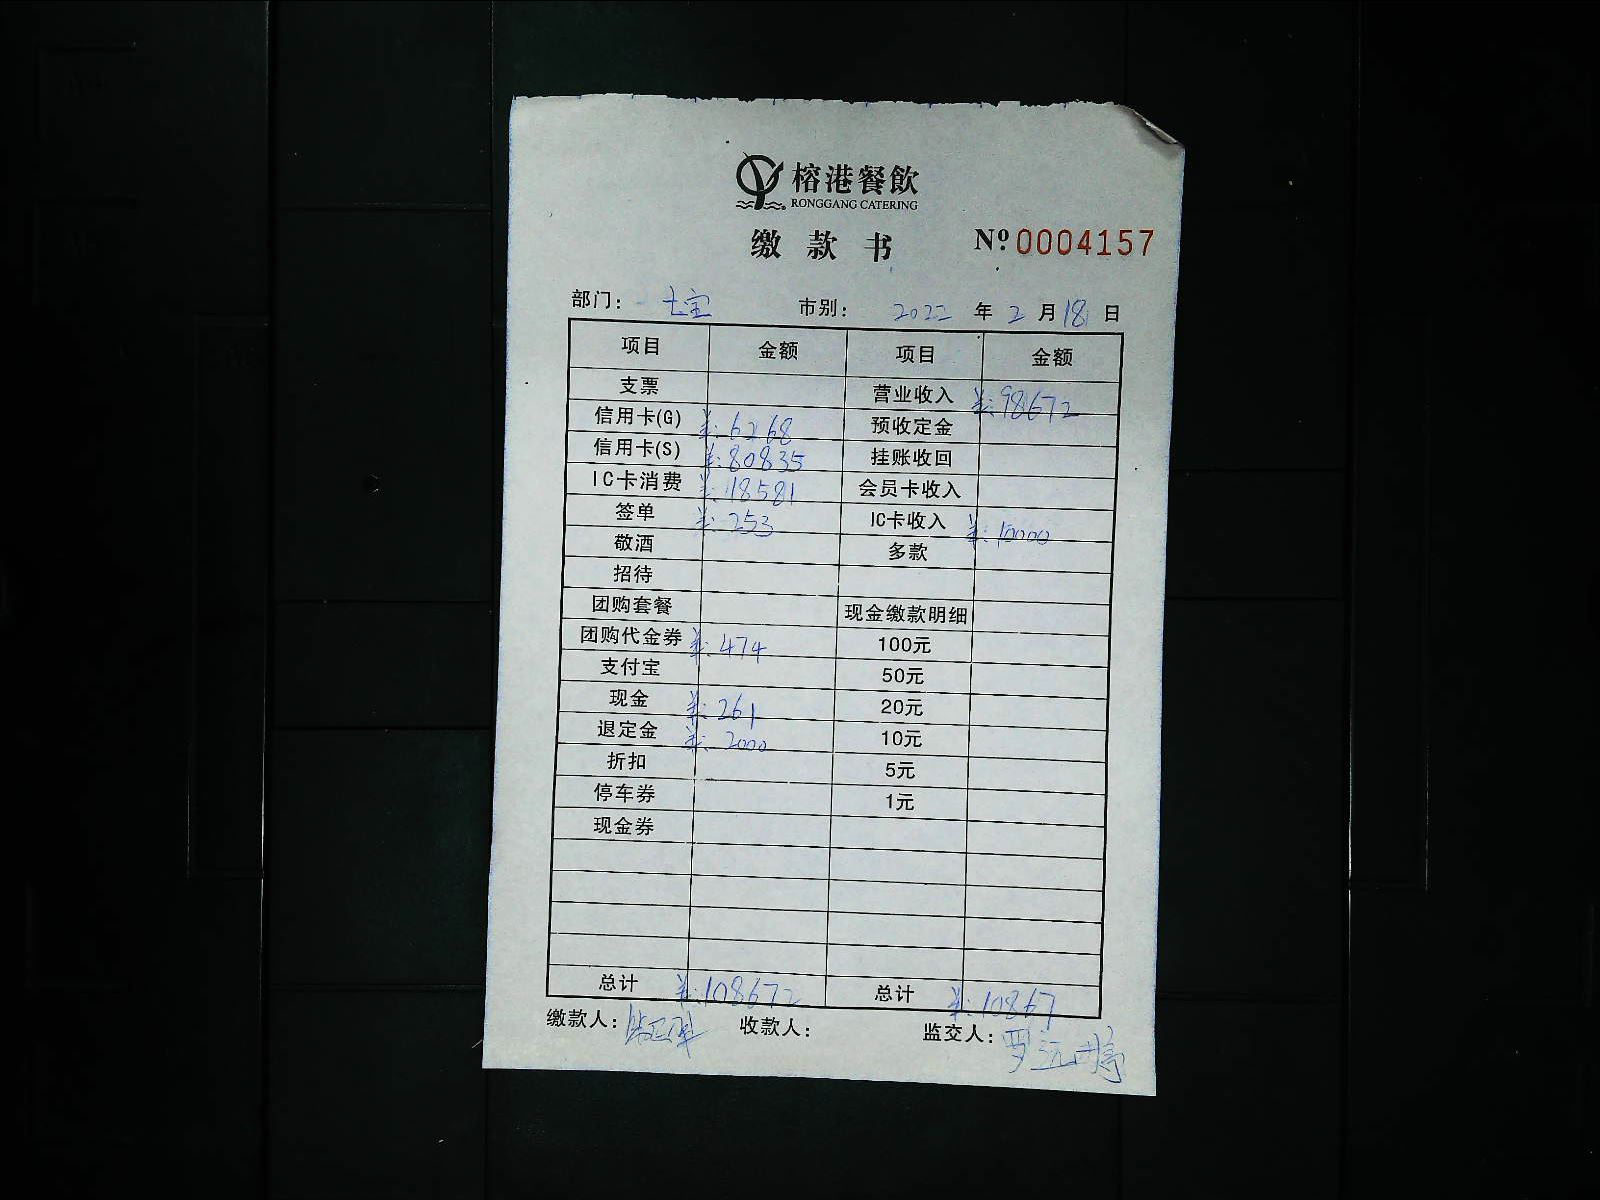 榕港餐飲
RONGGANG CATERING
缴款书 Nº 0004157
部门： 七宝 市别： 2022 年 2 月 18 日
项目 金额 项目 金额
支票 营业收入 ¥:98672
信用卡(G) ¥:6268 预收定金
信用卡(S) ¥:80835 挂账收回
IC卡消费 ¥:18581 会员卡收入
签单 ¥:253 IC卡收入 ¥:10000
敬酒 多款
招待
团购套餐 现金缴款明细
团购代金券 ¥:474 100元
支付宝 50元
现金 ¥:261 20元
退定金 ¥:2000 10元
折扣 5元
停车券 1元
现金券
总计 ¥:108672 总计 ¥:10867
缴款人： 收款人： 监交人：